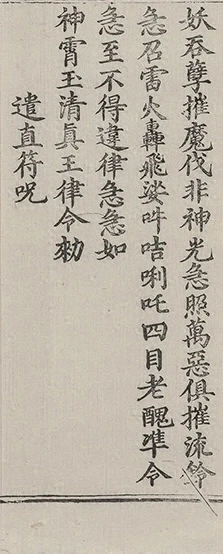 妖吞孽摧魔伐非神光急照萬惡俱摧流鈴
急召雷火轟飛娑吽咭唎吒四目老醜準令
急至不得違律急急如
神霄玉清真王律令勑
遣直符咒